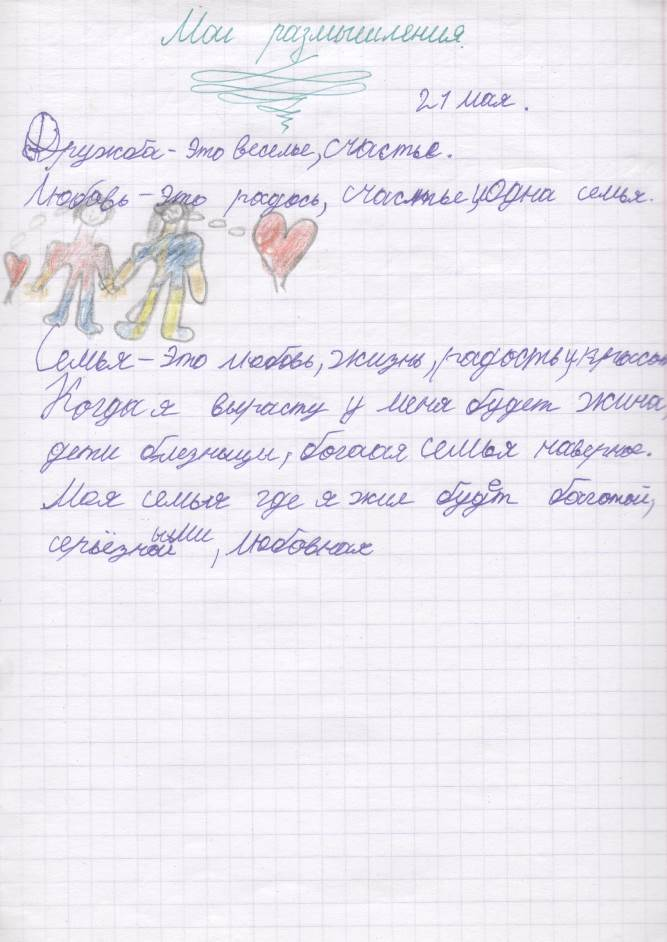 Мои размышления.
21 мая.
Дружба - это веселье, счастье.
Любовь - это радось, счастье, одна семья.
Семья - это любовь, жизнь, радость, красот
Когда я вырасту у меня будет жина,
дети близнецы, богаая семья наверное.
Моя семья где я жил будет богатой,
серьёзной ыми, любовная